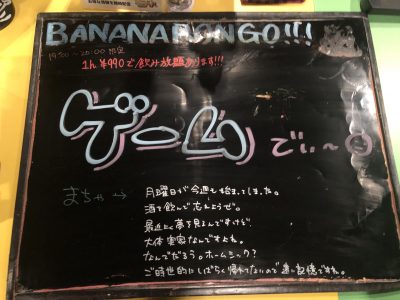 BANANA BONGO!!!
19:00~20:00 限定
1h ¥990で飲み放題あります!!!
ゲーム
でい~
まちゃ →
月曜日が今週も始まってしまった。
酒を飲んで忘れようぜ。
最近よく夢を見るんですけど、
大体実家なんですよね。
なんでだろう。ホームシック?
ご時世的にしばらく帰れてないので遠い記憶ですね。